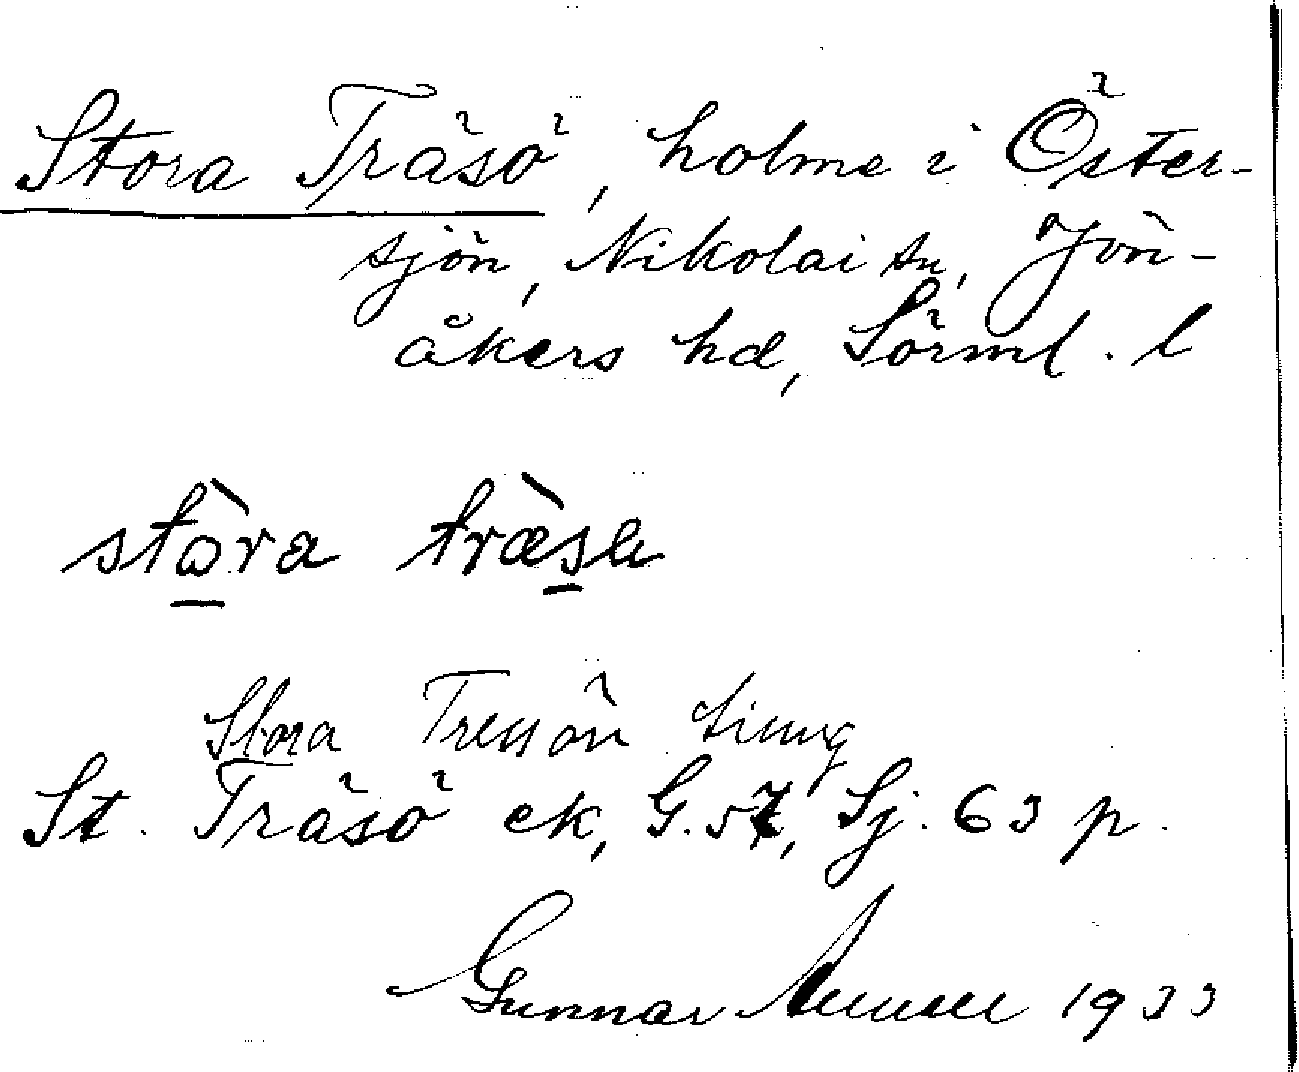 Stora Träsö, holme i Öster-
sjön, Nikolai sn, Jön-
åkers hd, Sörml. l
stòra træ̀sɷ
Stora Tressön
St. Träsö ek, G.57, Sj. 63 p.
Gunnar 1933